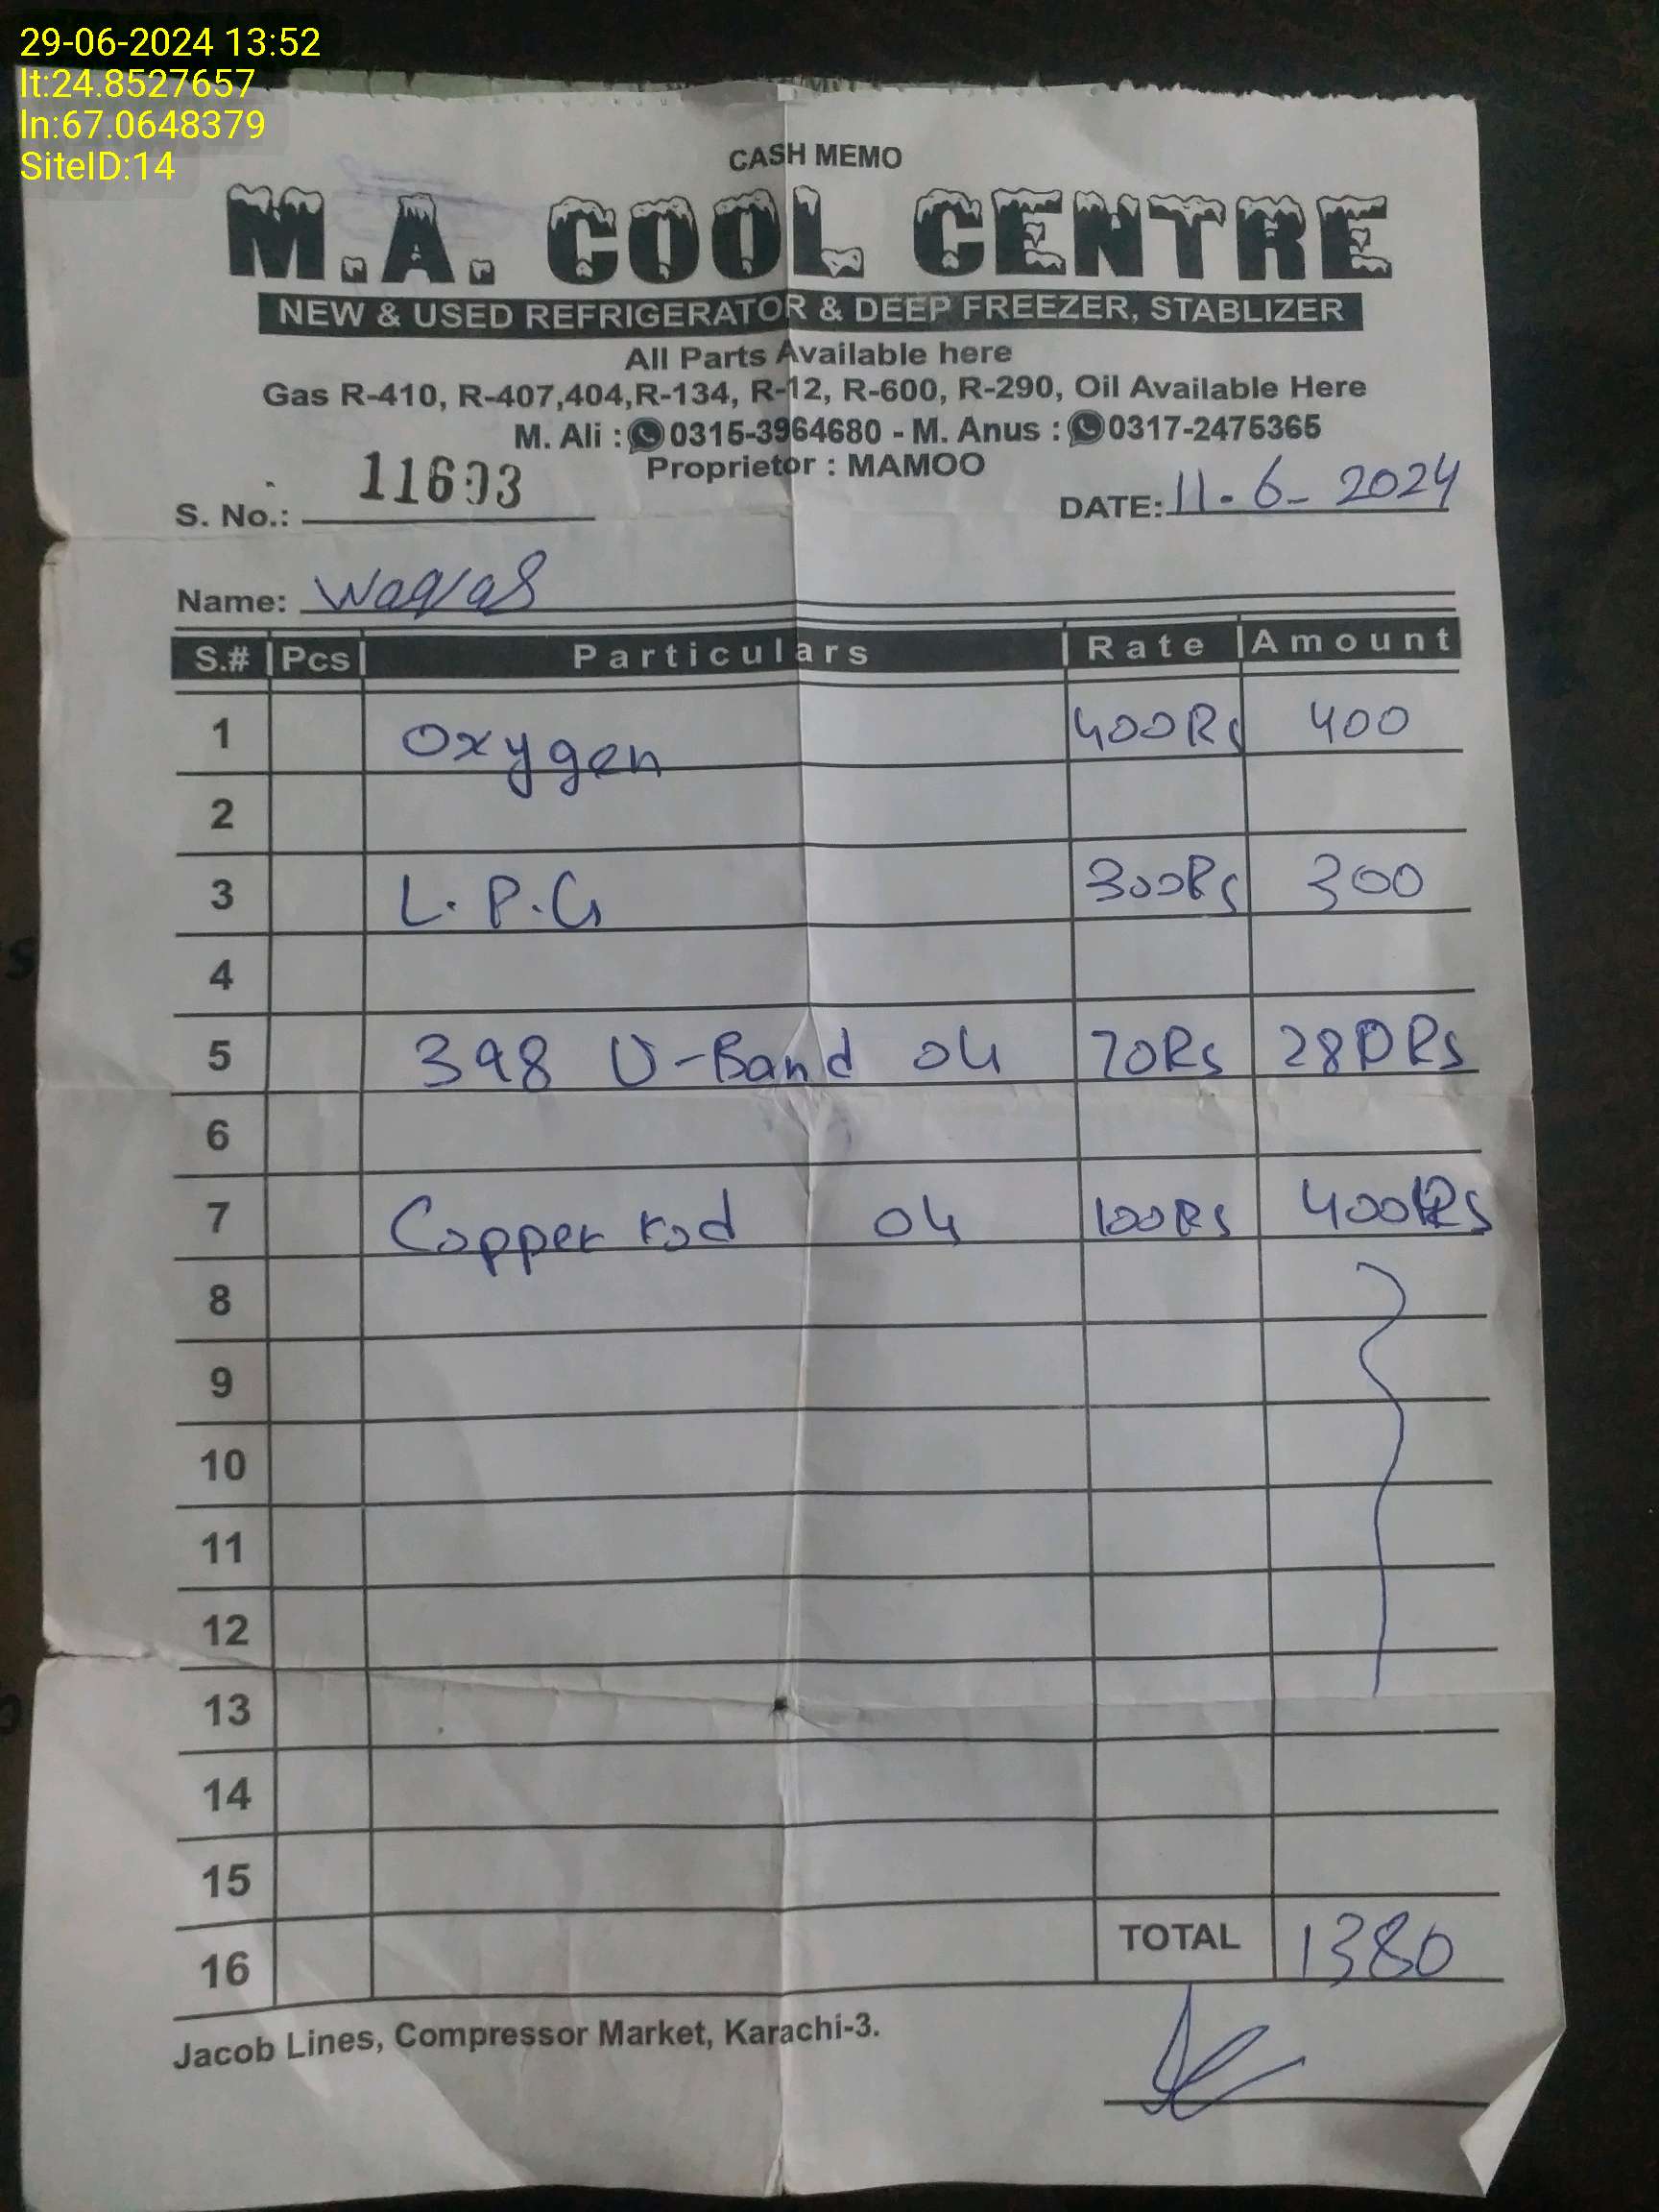 29-06-2024 13:52
lt:24.8527657
ln:67.0648379
SiteID:14
CASH MEMO
M.A. COOL CENTRE
NEW & USED REFRIGERATOR & DEEP FREEZER, STABLIZER
All Parts Available here
Gas R-410, R-407,404,R-134, R-12, R-600, R-290, Oil Available Here
M. Ali : 0315-3964680 - M. Anus : 0317-2475365
Proprietor : MAMOO
S. No.: 11603 DATE: 11-6-2024
Name: Waqas
S.# Pcs Particulars Rate Amount
1 Oxygen 400Rs 400
2
3 L.P.G 300Rs 300
4
5 398 U-Band 04 70Rs 280Rs
6
7 Copper rod 04 100Rs 400Rs
8
9
10
11
12
13
14
15
16 TOTAL 1380
Jacob Lines, Compressor Market, Karachi-3.